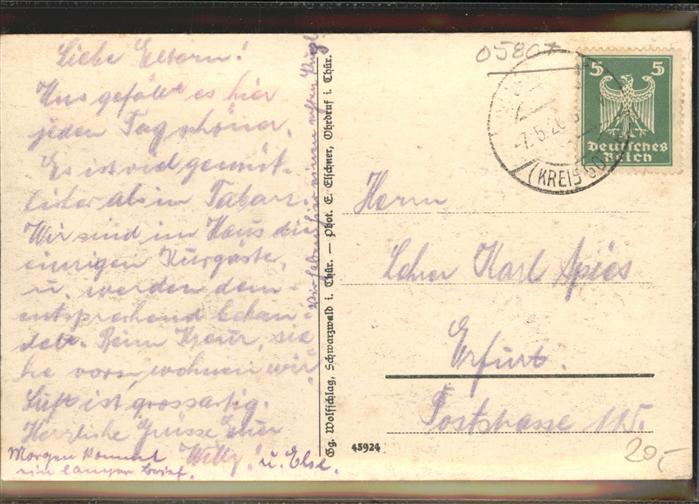 Liebe Eltern!
Uns gefällt es hier
jeden Tag schöner.
Es ist viel gemüt-
licher als in Tabarz.
Wir sind im Haus die
einzigen Kurgäste,
u. werden dem-
entsprechend behan-
delt. Beim Kreuz, sie-
he vorn, wohnen wir.
Luft ist grossartig.
Herzliche Grüsse Euer
Willy u. Else.
Morgen kommt
ein langer Brief.
Wir haben hier einen
Gg. Wolfschlag, Schwarzwald i. Thür. — Phot. E. Elschner, Ohrdruf i. Thür.
45924
05807
5 5
Deutsches
Reich
-7.5.26
(KREIS GO
Herrn
Lehrer Karl Spies
Erfurt.
Poststrasse 115.
20,-